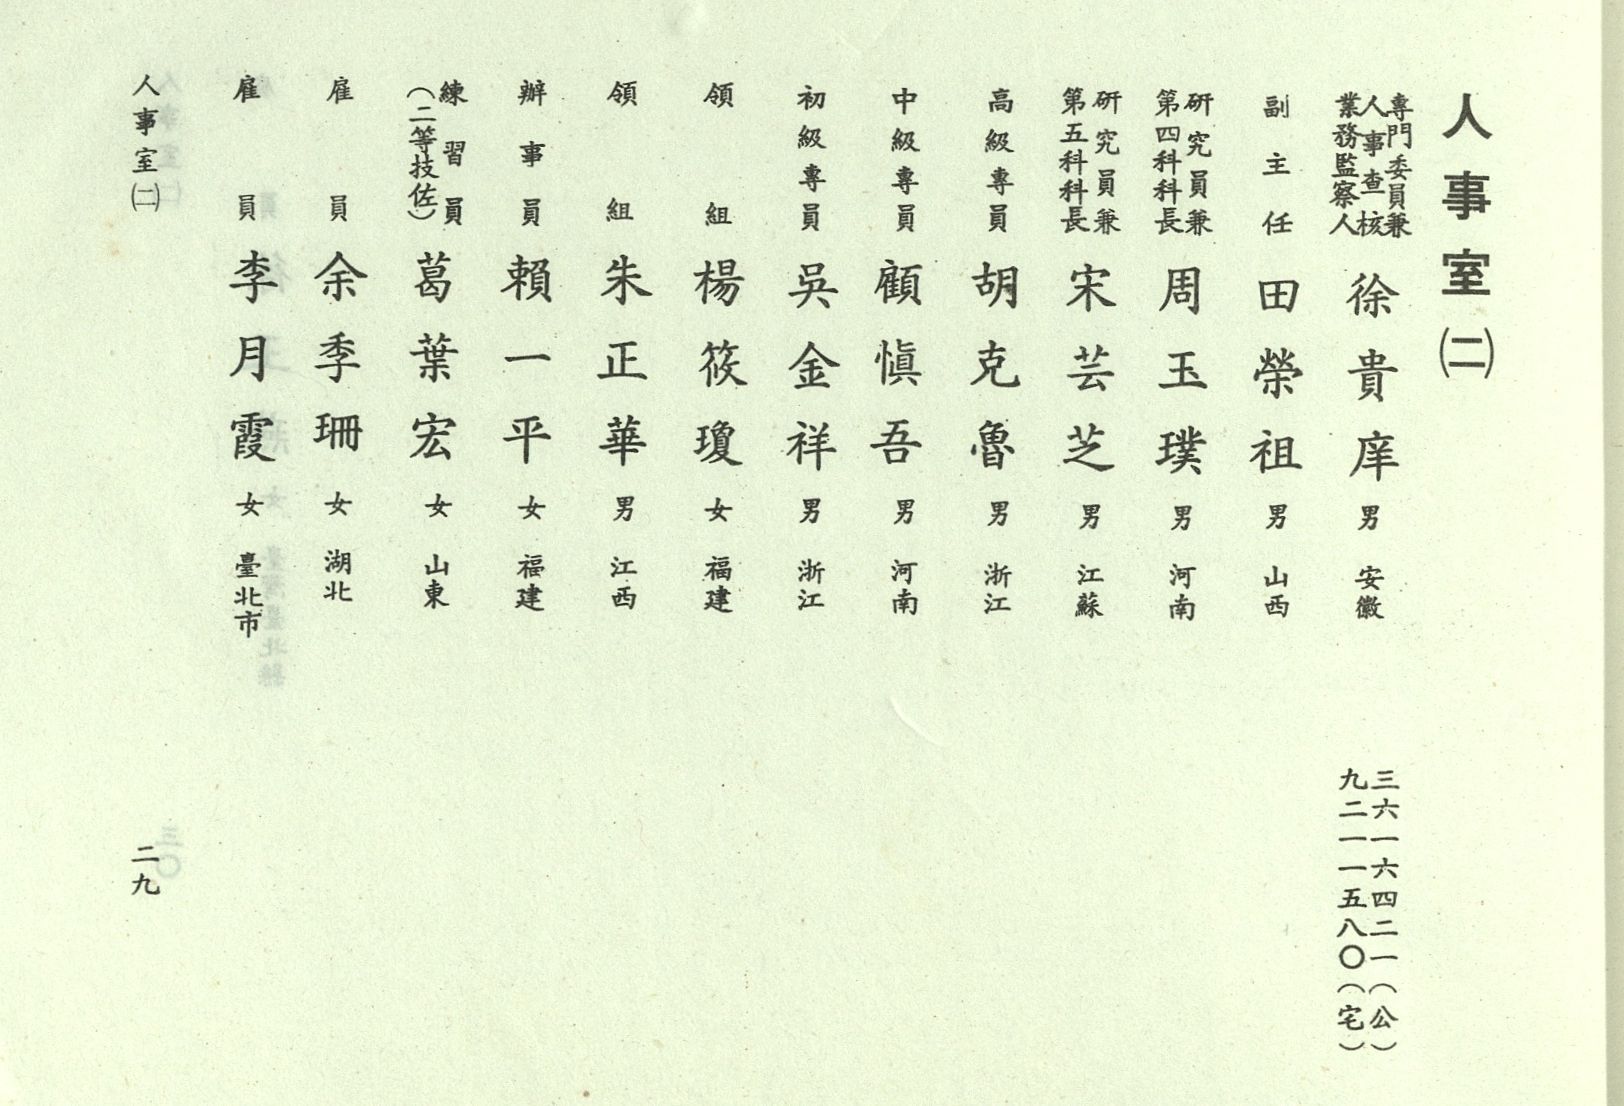 人事室㈡
專門委員兼
人事查核
業務監察人
徐貴庠 男 安徽
三六一六四二一（公）
九二一一五八〇（宅）
副主任 田榮祖 男 山西
研究員兼
第四科科長
周玉璞 男 河南
研究員兼
第五科科長
宋芸芝 男 江蘇
高級專員 胡克魯 男 浙江
中級專員 顧愼吾 男 河南
初級專員 吳金祥 男 浙江
領組 楊筱瓊 女 福建
領組 朱正華 男 江西
辦事員 賴一平 女 福建
練習員
（二等技佐）
葛葉宏 女 山東
雇員 余季珊 女 湖北
雇員 李月霞 女 臺北市
人事室㈡
二九